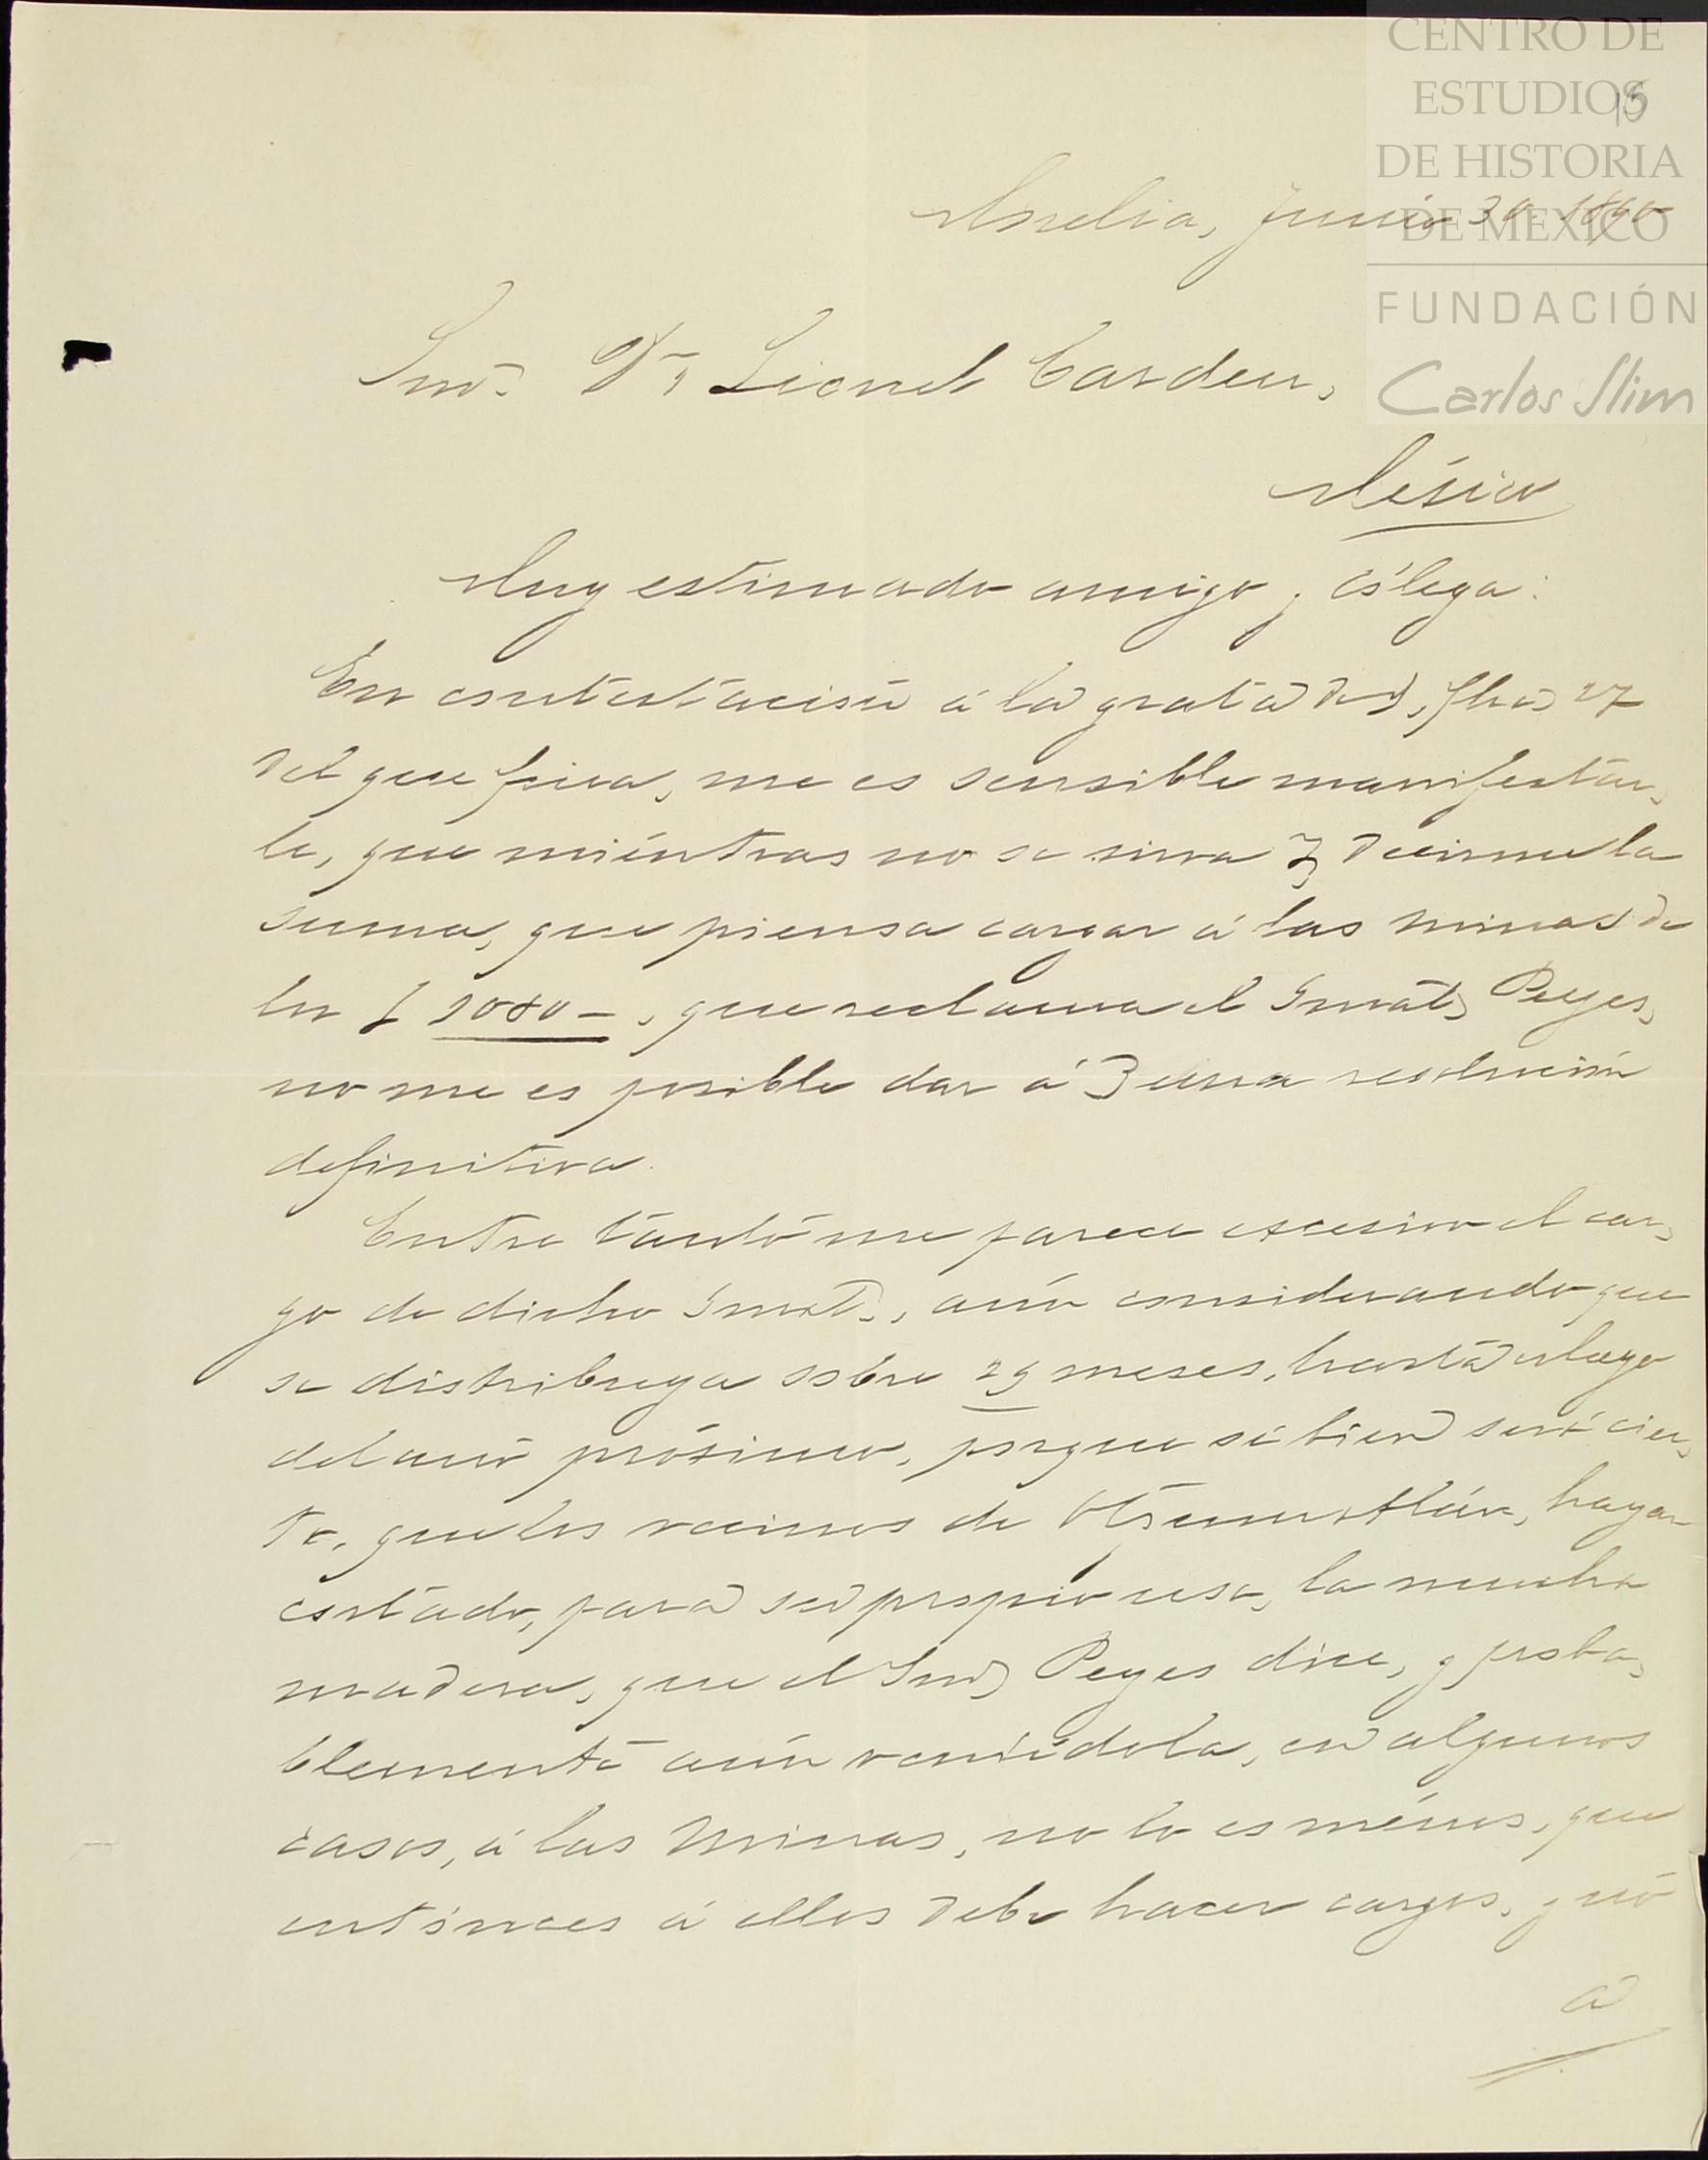 CENTRO DE
ESTUDIOS
DE HISTORIA
DE MEXICO
FUNDACIÓN
Carlos Slim
15
Morelia, Junio 30. 1890
Snr. Dn. Lionel Carden,
México
Muy estimado amigo y cólega:
En contestacion á la grata de V, fha 27
del que fina, me es sensible manifestar-
le, que miéntras no se sirva V, decirme la
suma, que piensa cargar á las minas de
los $ 2080 -, que reclama el Reyes,
no me es posible dar á V una resolucion
definitiva.
Entre tanto me parece excesivo el car-
go de dicho aún considerando que
se distribuya sobre 29 meses, hasta Mayo
del año próximo, porque si bien será cier-
to, que los vecinos de Otzumatlán, hayan
cortado, para su propio uso, la mucha
madera, que el Snr, Reyes dice, y proba-
blemente aún vendídola, en algunos
casos, á las Minas, no lo es ménos, que
entónces á ellos debe hacer cargos, y nó
á